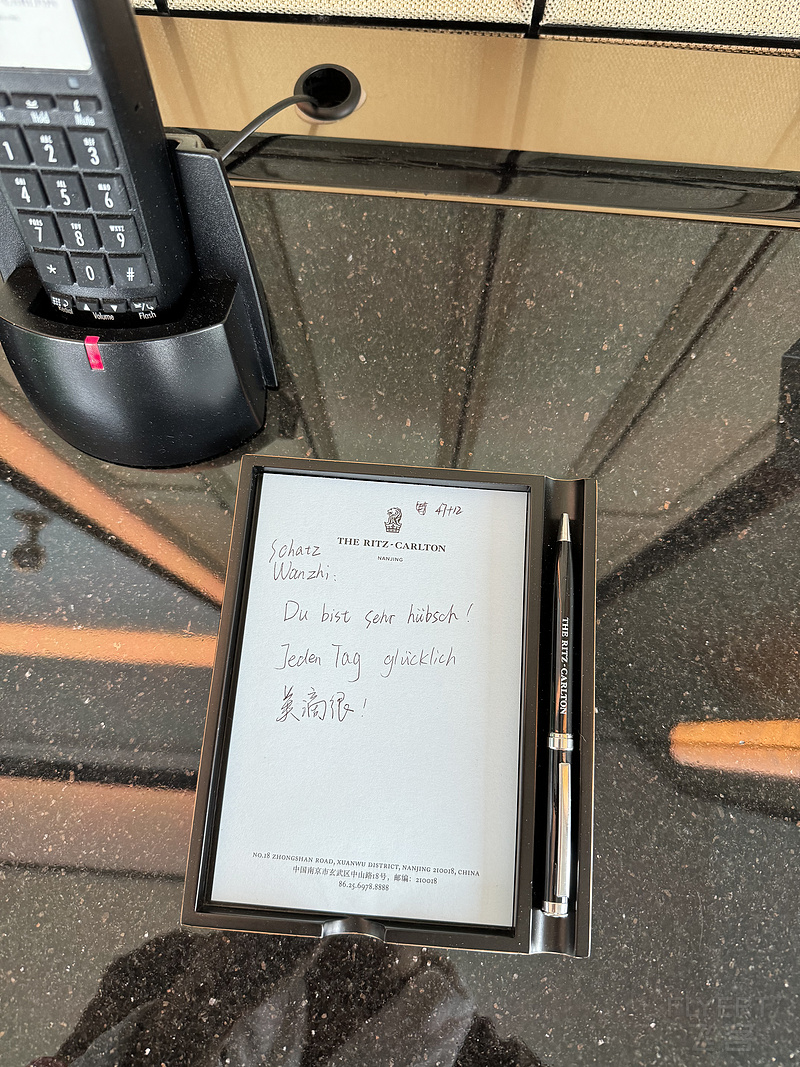 Redial
Mute
1
2 ABC
3 DEF
4 GHI
5 JKL
6 MNO
7 PQRS
8 TUV
9 WXYZ
*
0
#
Volume
Flash
47+12
THE RITZ-CARLTON
NANJING
Schatz
Wanzhi:
Du bist sehr hübsch!
Jeden Tag glücklich
美滴很!
THE RITZ-CARLTON
NO.18 ZHONGSHAN ROAD, XUANWU DISTRICT, NANJING 210018, CHINA
中国南京市玄武区中山路18号, 邮编: 210018
86.25.6978.8888